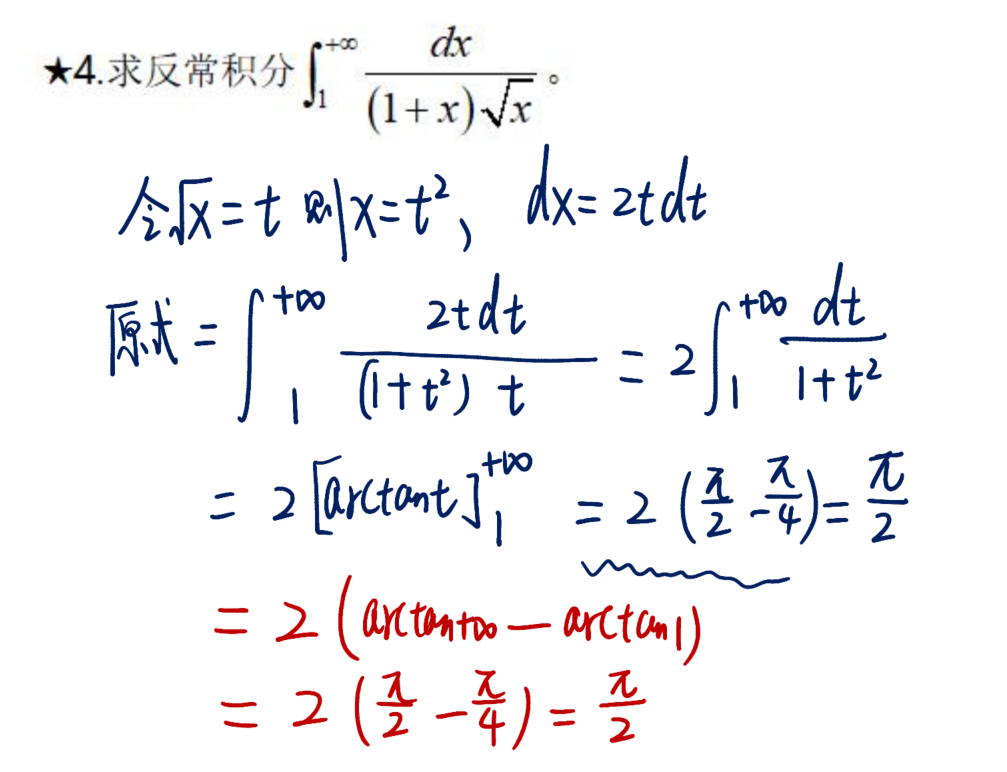 ★4.求反常积分∫₁^{+∞} dx/((1+x)√x)。
令√x=t 则x=t², dx=2tdt
原式=∫₁^{+∞} 2tdt/((1+t²)t) = 2∫₁^{+∞} dt/(1+t²)
=2[arctant]₁^{+∞} =2(π/2-π/4)=π/2
=2(arctan+∞-arctan1)
=2(π/2-π/4)=π/2